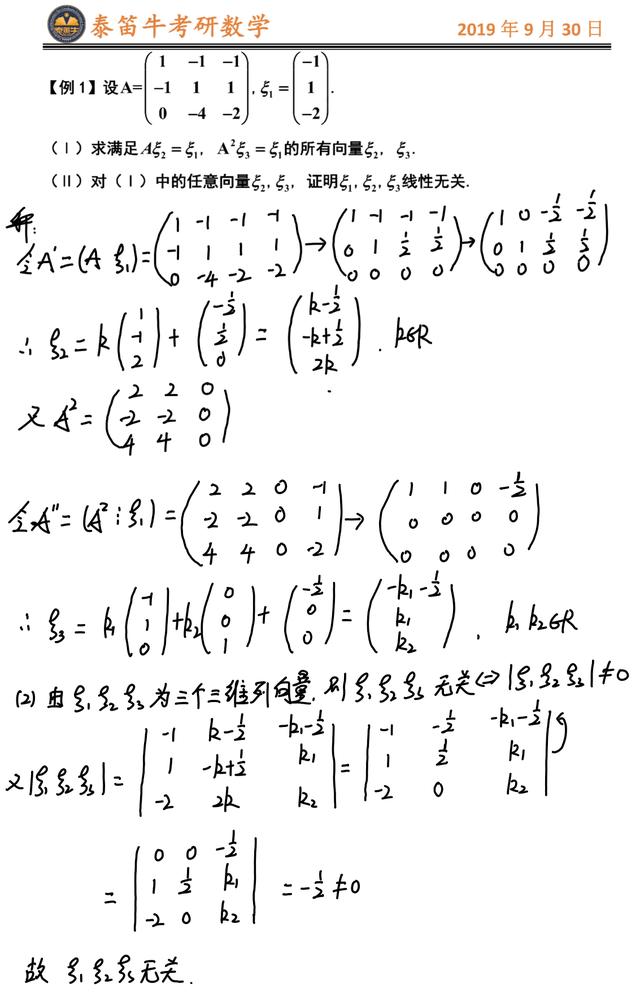 泰笛牛考研数学 2019 年 9 月 30 日
【例 1】设 A=(1 -1 -1; -1 1 1; 0 -4 -2), ξ₁=(-1; 1; -2).
(Ⅰ) 求满足 Aξ₂=ξ₁, A²ξ₃=ξ₁的所有向量ξ₂, ξ₃.
(Ⅱ) 对(Ⅰ)中的任意向量ξ₂, ξ₃, 证明ξ₁, ξ₂, ξ₃线性无关.
解:
令A'=(A ξ₁)=(1 -1 -1 -1; -1 1 1 1; 0 -4 -2 -2)→(1 -1 -1 -1; 0 1 1/2 1/2; 0 0 0 0)→(1 0 -1/2 -1/2; 0 1 1/2 1/2; 0 0 0 0)
∴ ξ₂=k(1; -1; 2)+(-1/2; 1/2; 0)=(k-1/2; -k+1/2; 2k). k∈R
又A²=(2 2 0; -2 -2 0; 4 4 0)
令A''=(A²⋮ξ₁)=(2 2 0 -1; -2 -2 0 1; 4 4 0 -2)→(1 1 0 -1/2; 0 0 0 0; 0 0 0 0)
∴ ξ₃=k₁(-1; 1; 0)+k₂(0; 0; 1)+(-1/2; 0; 0)=(-k₁-1/2; k₁; k₂), k₁ k₂∈R
(2) 由ξ₁ ξ₂ ξ₃为三个三维列向量, 则ξ₁ ξ₂ ξ₃无关⇔|ξ₁ ξ₂ ξ₃|≠0
又|ξ₁ ξ₂ ξ₃|=|-1 k-1/2 -k₁-1/2; 1 -k+1/2 k₁; -2 2k k₂|=|-1 -1/2 -k₁-1/2; 1 1/2 k₁; -2 0 k₂|
=|0 0 -1/2; 1 1/2 k₁; -2 0 k₂|=-1/2≠0
故 ξ₁ ξ₂ ξ₃无关.